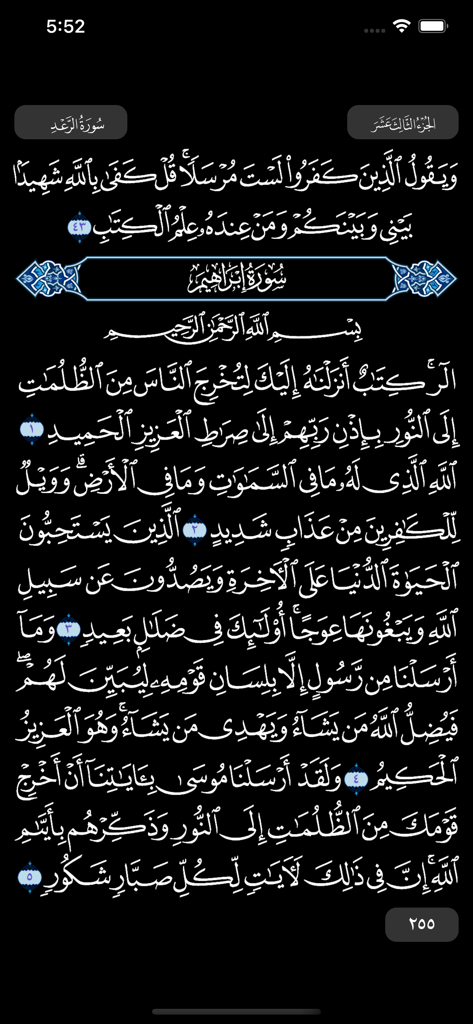 5:52
سُورَةُ الرَّعْدِ
الجُزْءُ الثَّالِثَ عَشَرَ
وَيَقُولُ ٱلَّذِينَ كَفَرُواْ لَسۡتَ مُرۡسَلٗاۚ قُلۡ كَفَىٰ بِٱللَّهِ شَهِيدَۢا
بَيۡنِي وَبَيۡنَكُمۡ وَمَنۡ عِندَهُۥ عِلۡمُ ٱلۡكِتَٰبِ ٤٣
سُورَةُ إِبْرَاهِيمَ
بِسۡمِ ٱللَّهِ ٱلرَّحۡمَٰنِ ٱلرَّحِيمِ
الٓرۚ كِتَٰبٌ أَنزَلۡنَٰهُ إِلَيۡكَ لِتُخۡرِجَ ٱلنَّاسَ مِنَ ٱلظُّلُمَٰتِ
إِلَى ٱلنُّورِ بِإِذۡنِ رَبِّهِمۡ إِلَىٰ صِرَٰطِ ٱلۡعَزِيزِ ٱلۡحَمِيدِ ١
ٱللَّهِ ٱلَّذِي لَهُۥ مَا فِي ٱلسَّمَٰوَٰتِ وَمَا فِي ٱلۡأَرۡضِۗ وَوَيۡلٞ
لِّلۡكَٰفِرِينَ مِنۡ عَذَابٖ شَدِيدٍ ٢ ٱلَّذِينَ يَسۡتَحِبُّونَ
ٱلۡحَيَوٰةَ ٱلدُّنۡيَا عَلَى ٱلۡأٓخِرَةِ وَيَصُدُّونَ عَن سَبِيلِ
ٱللَّهِ وَيَبۡغُونَهَا عِوَجًاۚ أُوْلَٰٓئِكَ فِي ضَلَٰلِۭ بَعِيدٖ ٣ وَمَآ
أَرۡسَلۡنَا مِن رَّسُولٍ إِلَّا بِلِسَانِ قَوۡمِهِۦ لِيُبَيِّنَ لَهُمۡۖ
فَيُضِلُّ ٱللَّهُ مَن يَشَآءُ وَيَهۡدِي مَن يَشَآءُۚ وَهُوَ ٱلۡعَزِيزُ
ٱلۡحَكِيمُ ٤ وَلَقَدۡ أَرۡسَلۡنَا مُوسَىٰ بِـَٔايَٰتِنَآ أَنۡ أَخۡرِجۡ
قَوۡمَكَ مِنَ ٱلظُّلُمَٰتِ إِلَى ٱلنُّورِ وَذَكِّرۡهُم بِأَيَّىٰمِ
ٱللَّهِۚ إِنَّ فِي ذَٰلِكَ لَأٓيَٰتٖ لِّكُلِّ صَبَّارٖ شَكُورٖ ٥
٢٥٥